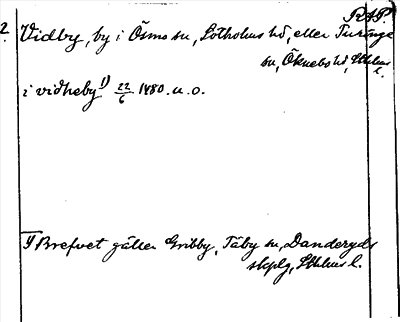 RAP.
2. Vidby, by i Ösmo sn, Sotholms hd, eller Turinge
sn, Öknebo hd, Sthlms l.
i vidheby 1) 22/6 1480. u. o.
1) Brefvet gäller Gribby, Täby sn, Danderyds
skplg, Sthlms l.